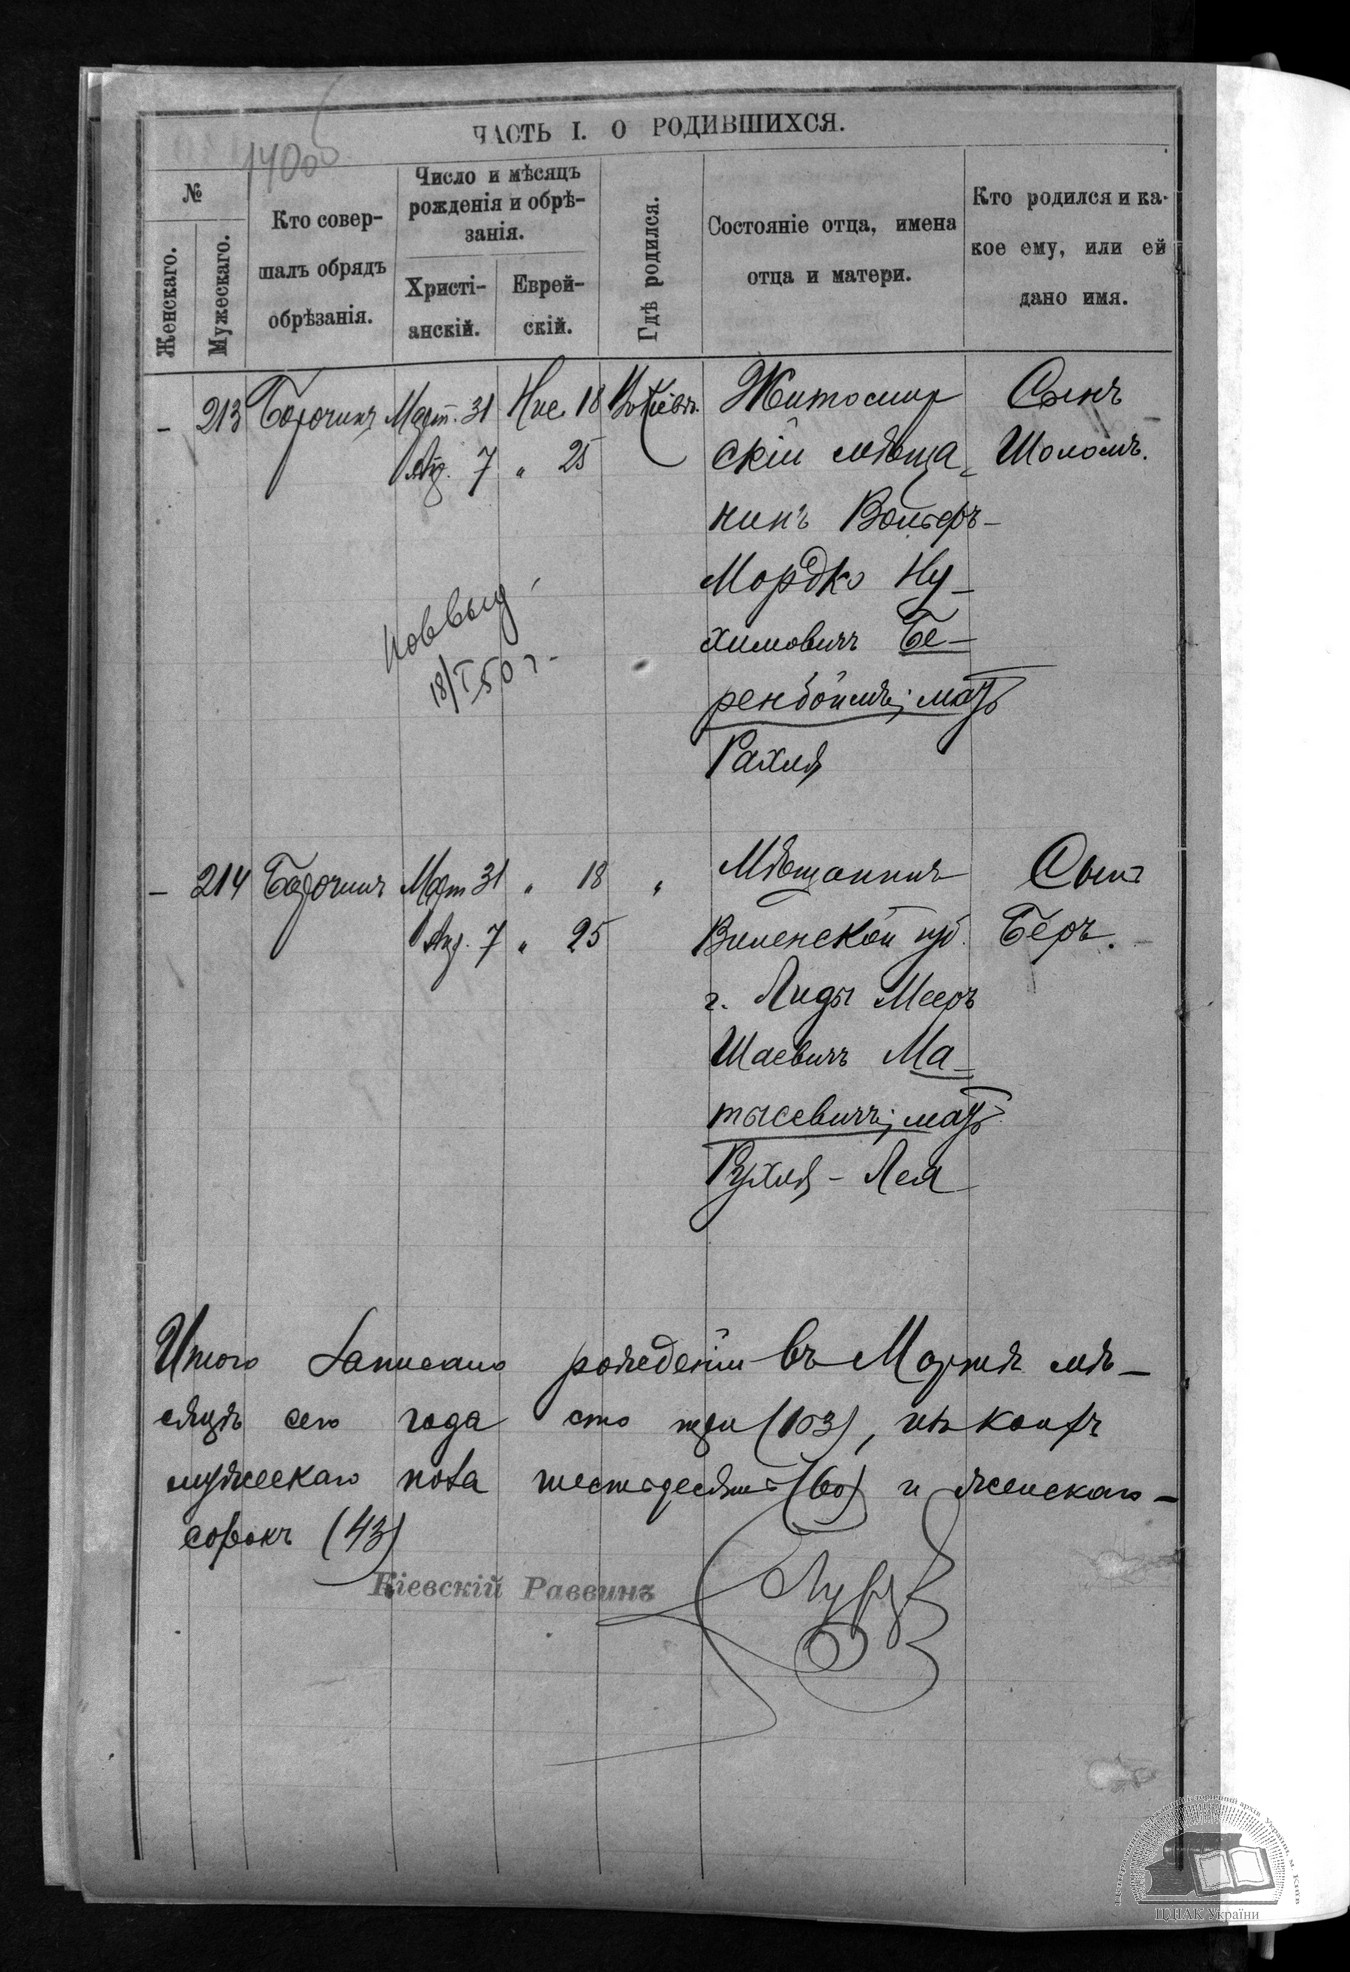 ЧАСТЬ I. О РОДИВШИХСЯ.
№
Женскаго.
Мужескаго.
Кто совер-
шалъ обрядъ
обрѣзанія.
Число и мѣсяцъ
рожденія и обрѣ-
занія.
Христі-
анскій.
Еврей-
скій.
Гдѣ родился.
Состояніе отца, имена
отца и матери.
Кто родился и ка-
кое ему, или ей
дано имя.
- 213 Март. 31 Нис. 18 Житомир
Апр. 7 „ 25
скій мѣща-
нинъ Вольфъ-
Мордко Ну-
химовичъ Бе-
ренбоймъ; мать
Рахля
Сынъ
Шоломъ.
18/I 50 г.
- 214 Март 31 „ 18 „
Апр. 7 „ 25
Мѣщанинъ
Виленской губ.
г. Лиды Мееръ
Шаевичъ Ма-
тысевичъ; мать
Рухля - Лея
Сынъ
Беръ.
Итого записано рожденій въ Мартѣ мѣ-
сяцѣ сего года сто три (103), изъ коихъ
мужескаго пола шестьдесятъ (60) и женскаго -
сорокъ (43)
Кіевскій Раввинъ
ЦДІАК України